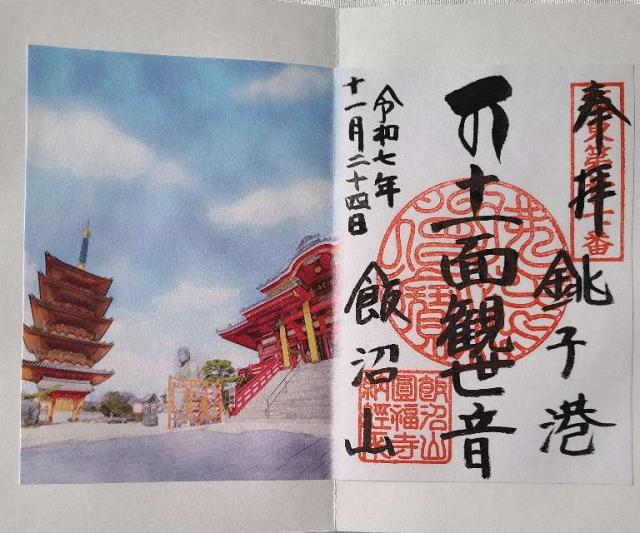 奉拝
東第
番
銚子港
十一面観世音
飯沼山
令和七年
十一月二十四日
飯沼山
圓福寺
納經